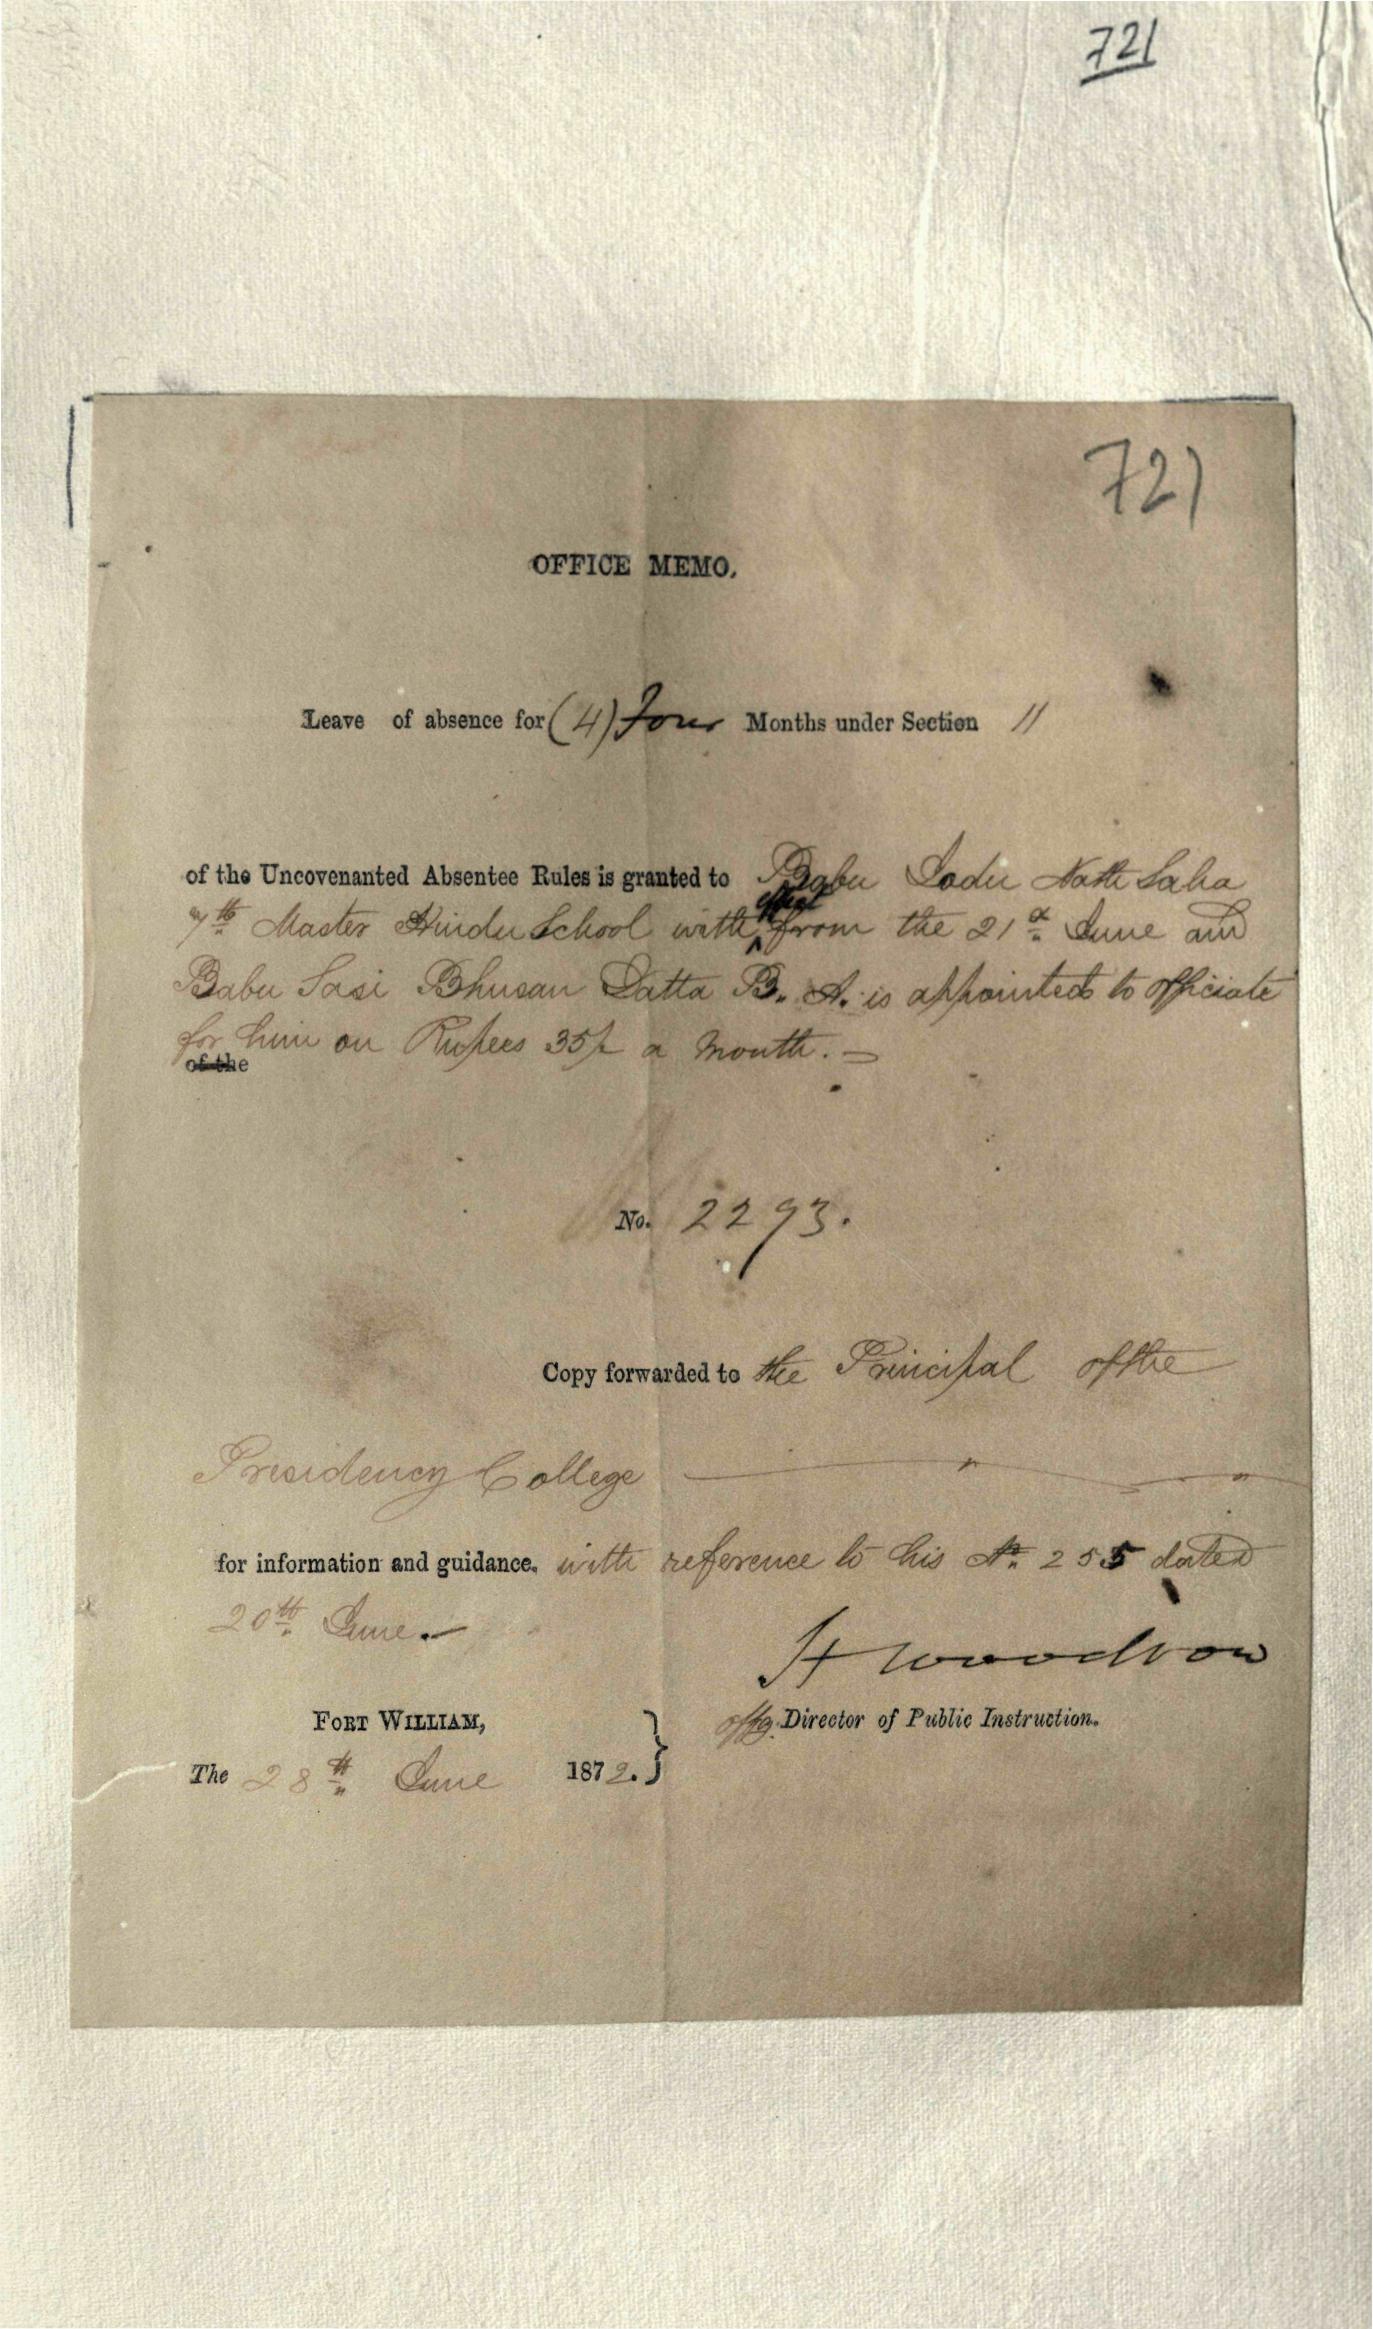 721
721
OFFICE MEMO.
Leave of absence for (4) Four Months under Section 11
of the Uncovenanted Absentee Rules is granted to Babu Jodu Nath Saha
7th Master Hindu School with effect from the 21st June and
Babu Sasi Bhusan Datta B. A. is appointed to officiate
for him on Rupees 35/- a month. —
of the
No. 2293.
Copy forwarded to the Principal of the
Presidency College
for information and guidance. with reference to his No. 255 dated
20th June. —
H Woodrow
offg. Director of Public Instruction.
FORT WILLIAM,
The 28th June 1872.